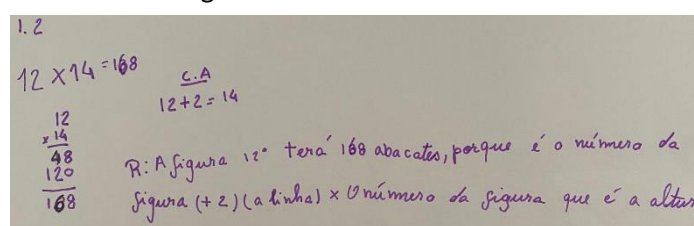 1.2
12 x 14 = 168
C.A
12 + 2 = 14
12
x 14
48
120
168
R: A figura 12° terá 168 abacates, porque é o número da
figura (+2) (a linha) x O número da figura que é a altura